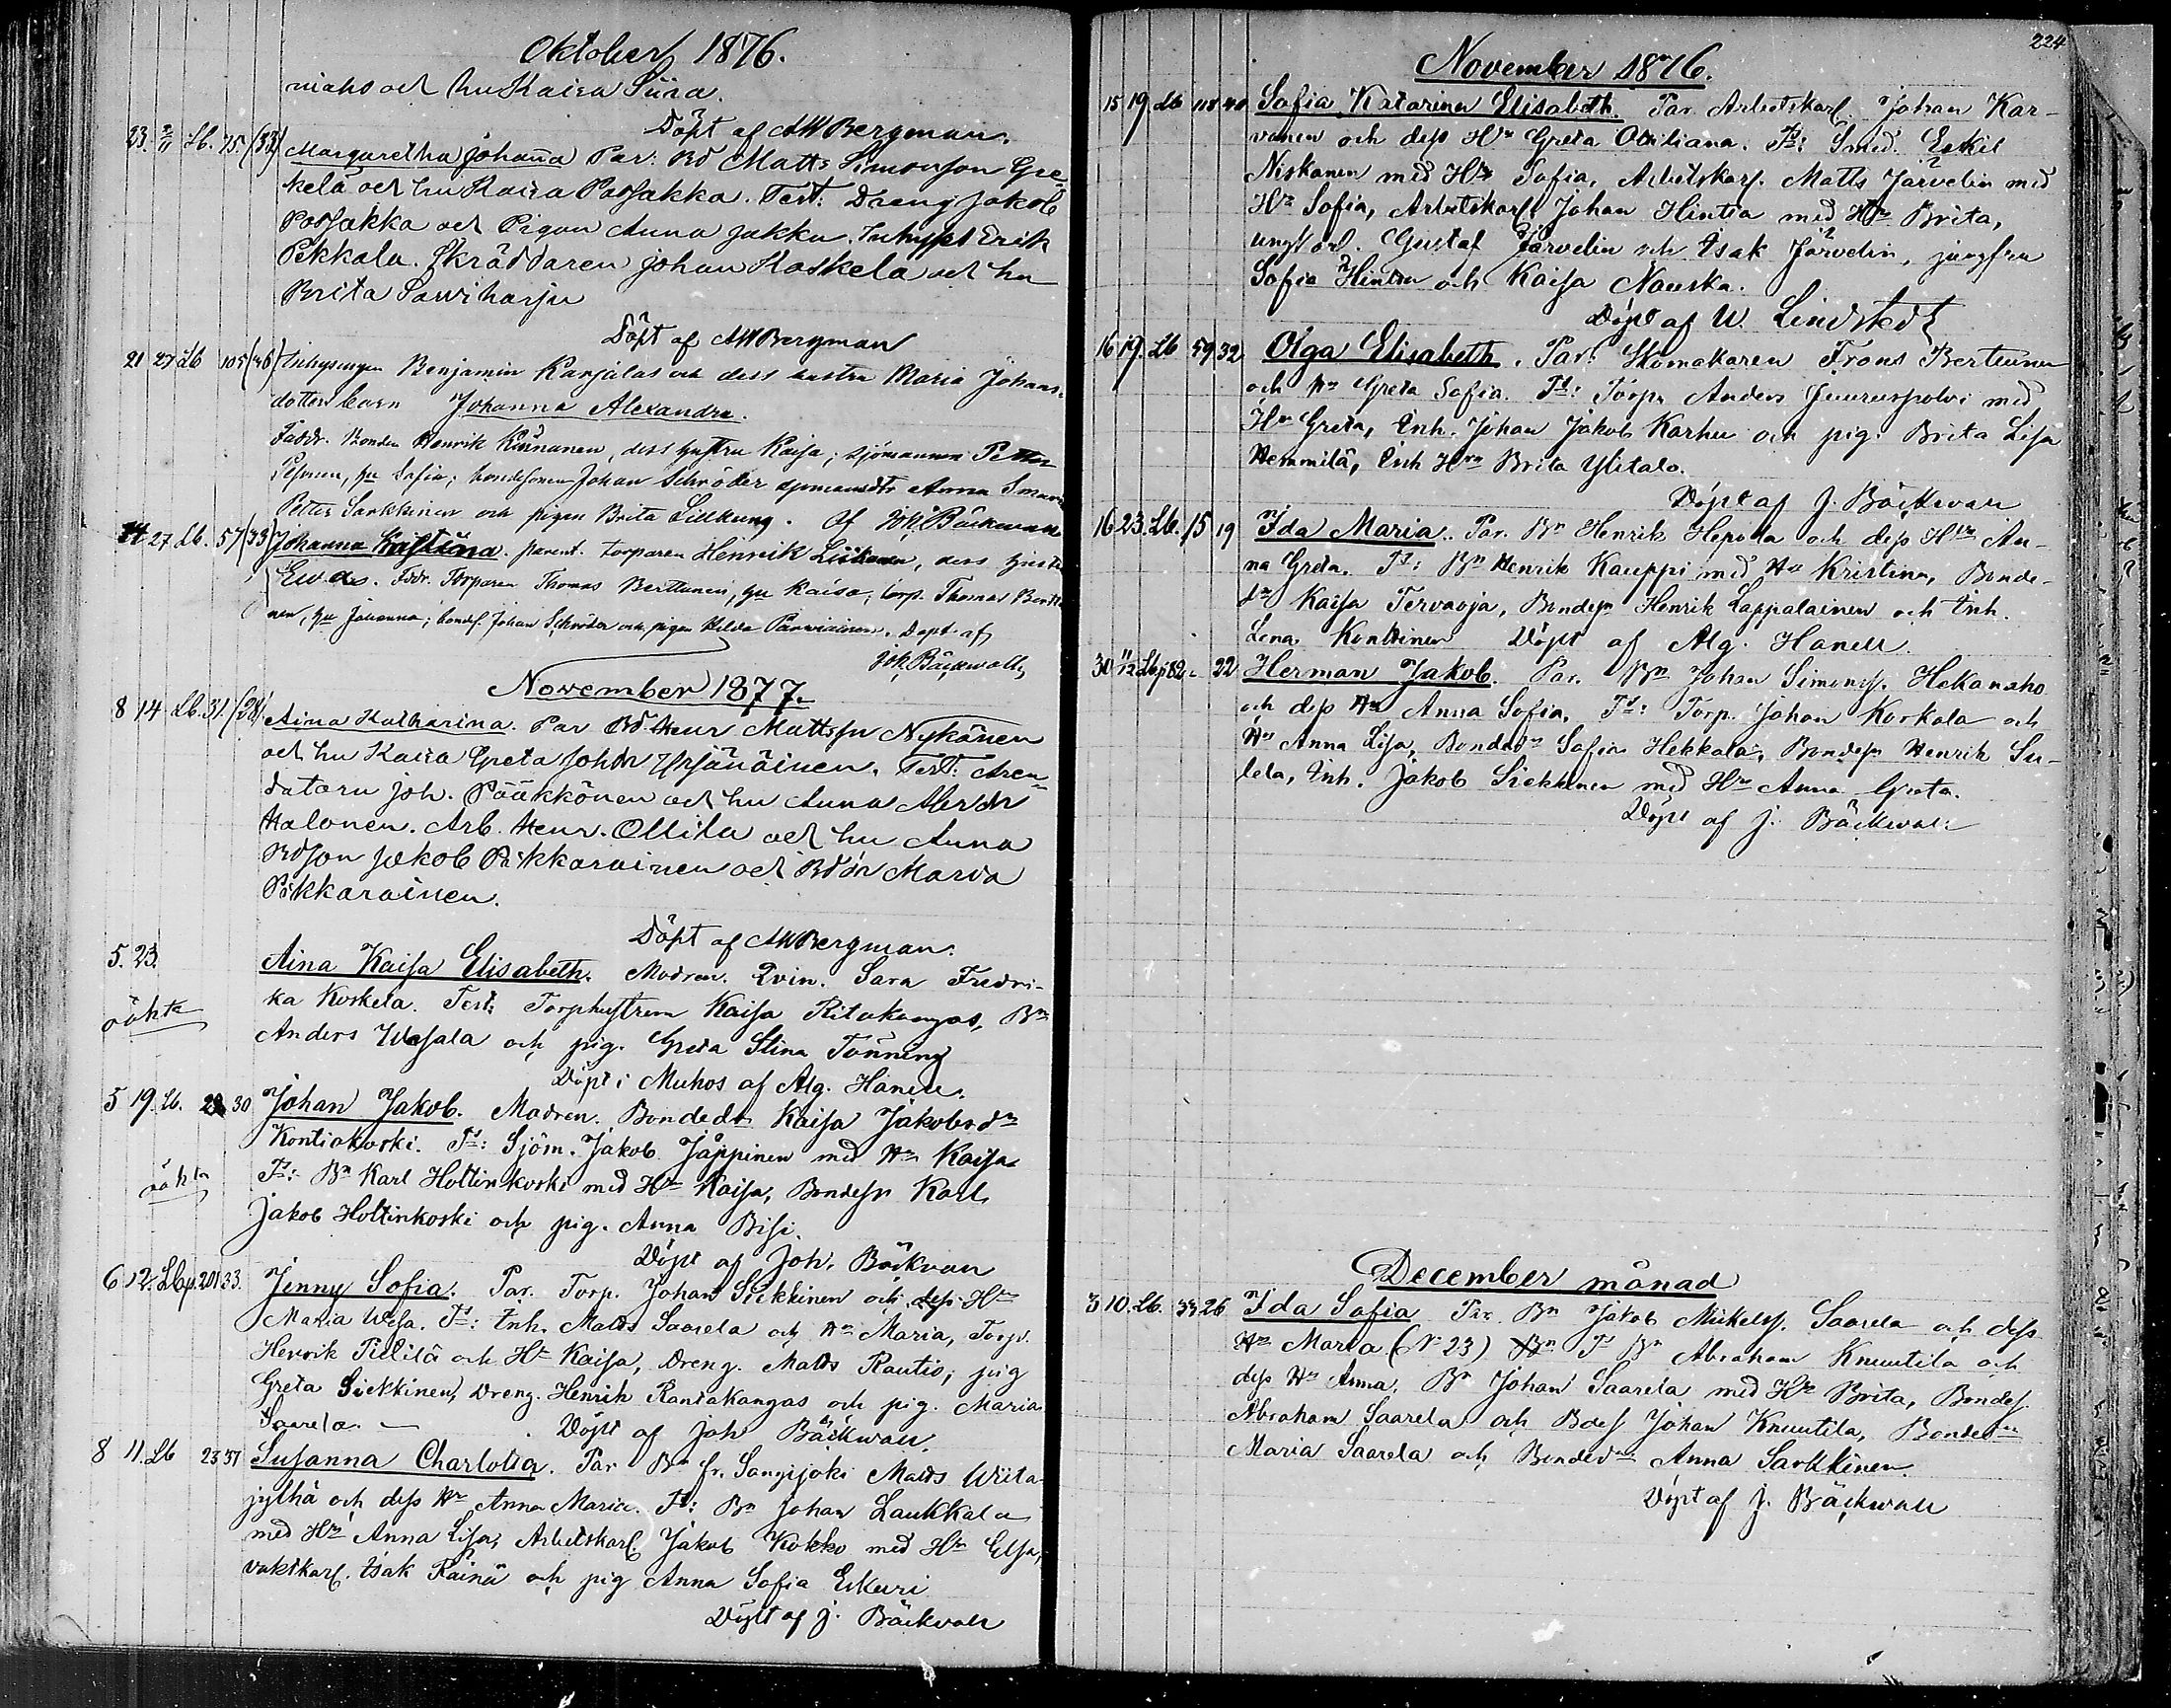 Oktober 1876.
niaho och hu Kaisa Siira.
Döpt af AWBergman.
23. 2/11 Lb. 75 (32) Margaretha Johanna Par: Bd Matts Simonsson Gre-
kelä och hu Kaisa Possakka. Test: Dreng Jakob
Possakka och Pigan Anna Jakku. Inhyst Erik
Pekkala. Skräddaren Johan Koskela och hu
Brita Sarviharju
Döpt af AWBergman
21 27 Lb 105 (46) Inhysingen Benjamin Karjalas och dess hustru Maria Johans-
dotters barn Johanna Alexandra.
Faddr. Bonden Henrik Kinnunen, dess hustru Kaisa; sjömannen Petter
Pesonen, hu Sofia; bondesonen Johan Schröder Anna
Petter Sarkkinen och pigan Brita Lillkung. Af Joh. Bäckwall
27 Lb. 57 (33) Johanna Kristiina. parent. torparen Henrik dess hustru
Eva Faddr. Torparen Thomas Berttunen, hu Kaisa, torp. Thomas Bertu-
nen, hu Johanna; bondes. Johan Schröder och pigan Hilda Parviainen. Dopt af
Joh. Bäckwall
November 1877.
8 14 Lb. 31. (28) Aina Katharina. Par Bd. Henr Mattsson Nykänen
och hu Kaisa Greta Johdr Yrjänäinen. Test: Aren-
datorn Joh. Pääkkönen och hu Anna
Halonen. Arb. Henr. Ollila och hu Anna
Bdson Jakob Pikkarainen och Bddr Maria
Pikkarainen.
Döpt af AWBergman.
5. 23. Aina Kaisa Elisabeth. Modren. Qvin. Sara Fredri-
oäkta ka Koskela. Test: Torphustrun Kaisa Ritakangas, Bn
Anders och pig. Greta Stina Tönning
Döpt i Muhos af Alg. Hanell.
5 19. Lb. 28 30 Johan Jakob. Modren. Bondedr Kaisa Jakobsdr
Kontiokoski. Ts: Sjöm. Jakob Jäppinen med Hu Kaisa
oäkta Ts: Bn Karl Holtinkoski med Hu Kaisa, Bondesn Karl
Jakob Holtinkoski och pig. Anna Bisi.
Döpt af Joh. Bäckvall
6 12. Lb p. 201 33. Jenny Sofia. Par. Torp. Johan Siekkinen och dess Hu
Maria Ts: Inh. Matts Saarela och Hu Maria, Torp.
Henrik Pielilä och Hu Kaisa, Dreng. Matts Rautio, pig
Greta Siekkinen, Dreng. Henrik Rantakangas och pig. Maria
Saarela. Döpt af Joh Bäckwall.
8 11. Lb 23 37 Susanna Charlotta. Par Bn fr. Sangijoki Matts Wiita-
jylhä och dess Hu Anna Maria. Ts: Bn Johan Laukkala
med Hu Anna Lisa, Arbetskarl. Jakob Kokko med Hu Elsa,
vaktkarl. Isak Painä och pig Anna Sofia Eskuri
Döpt af J. Bäckvall
224
November 1876.
15 19. Lb 118 40 Sofia Katarina Elisabeth. Par. Arbetskarl. Johan Kar-
vonen och dess Hu Greta Ottiliana. Ts: Smed. Eskil
Niskanen med Hu Sofia, Arbetskarl. Matts Järvelin med
Hu Sofia, Arbetskarl. Johan Hintsa med Hu Brita,
ungkarl. Gustaf Järvelin och Isak Järvelin, jungfru
Sofia Hintsa och Kaisa Nauska.
Döpt af W. Lindstedt
16 19. Lb 59 32 Olga Elisabeth. Par: Skomakaren Frans Bertunen
och Hu Greta Sofia. Ts: Torpn Anders Juuruspolvi med
Hu Greta, Inh. Johan Jakob Karhu och pig. Brita Lisa
Hemmilä, Inh Hu Brita Ylitalo.
Döpt af J. Bäckwall
16 23. Lb. 15 19 Ida Maria. Par. Bn Henrik Hepola och dess Hu An-
na Greta. Ts: Bn Henrik Kauppi med Hu Kristina, Bonde-
dr Kaisa Tervaoja, Bondesn Henrik Lappalainen och Inh.
Lena Konttinen Döpt af Alg. Hanell.
30 11/12 Lb p 82 22 Herman Jakob. Par. Bn Johan Simonss. Hekanaho
och dess Hu Anna Sofia. Ts: Torp. Johan Korkala och
Hu Anna Lisa, Bondedr Sofia Hekkala, Bondesn Henrik Su-
lela, Inh. Jakob Siekkinen med Hu Anna Greta.
Döpt af J. Bäckwall
December månad
3 10. Lb. 33 26 Ida Sofia Par. Bn Jakob Mickelss. Saarela och dess
Hu Maria (No 23) Ts Bn Abraham Knuutila och
dess Hu Anna. Bn Johan Saarela med Hu Brita, Bondes.
Abraham Saarela och Bdes Johan Knuutila, Bondedr
Maria Saarela och Bondedr Anna Sarkkinen.
Döpt af J. Bäckwall